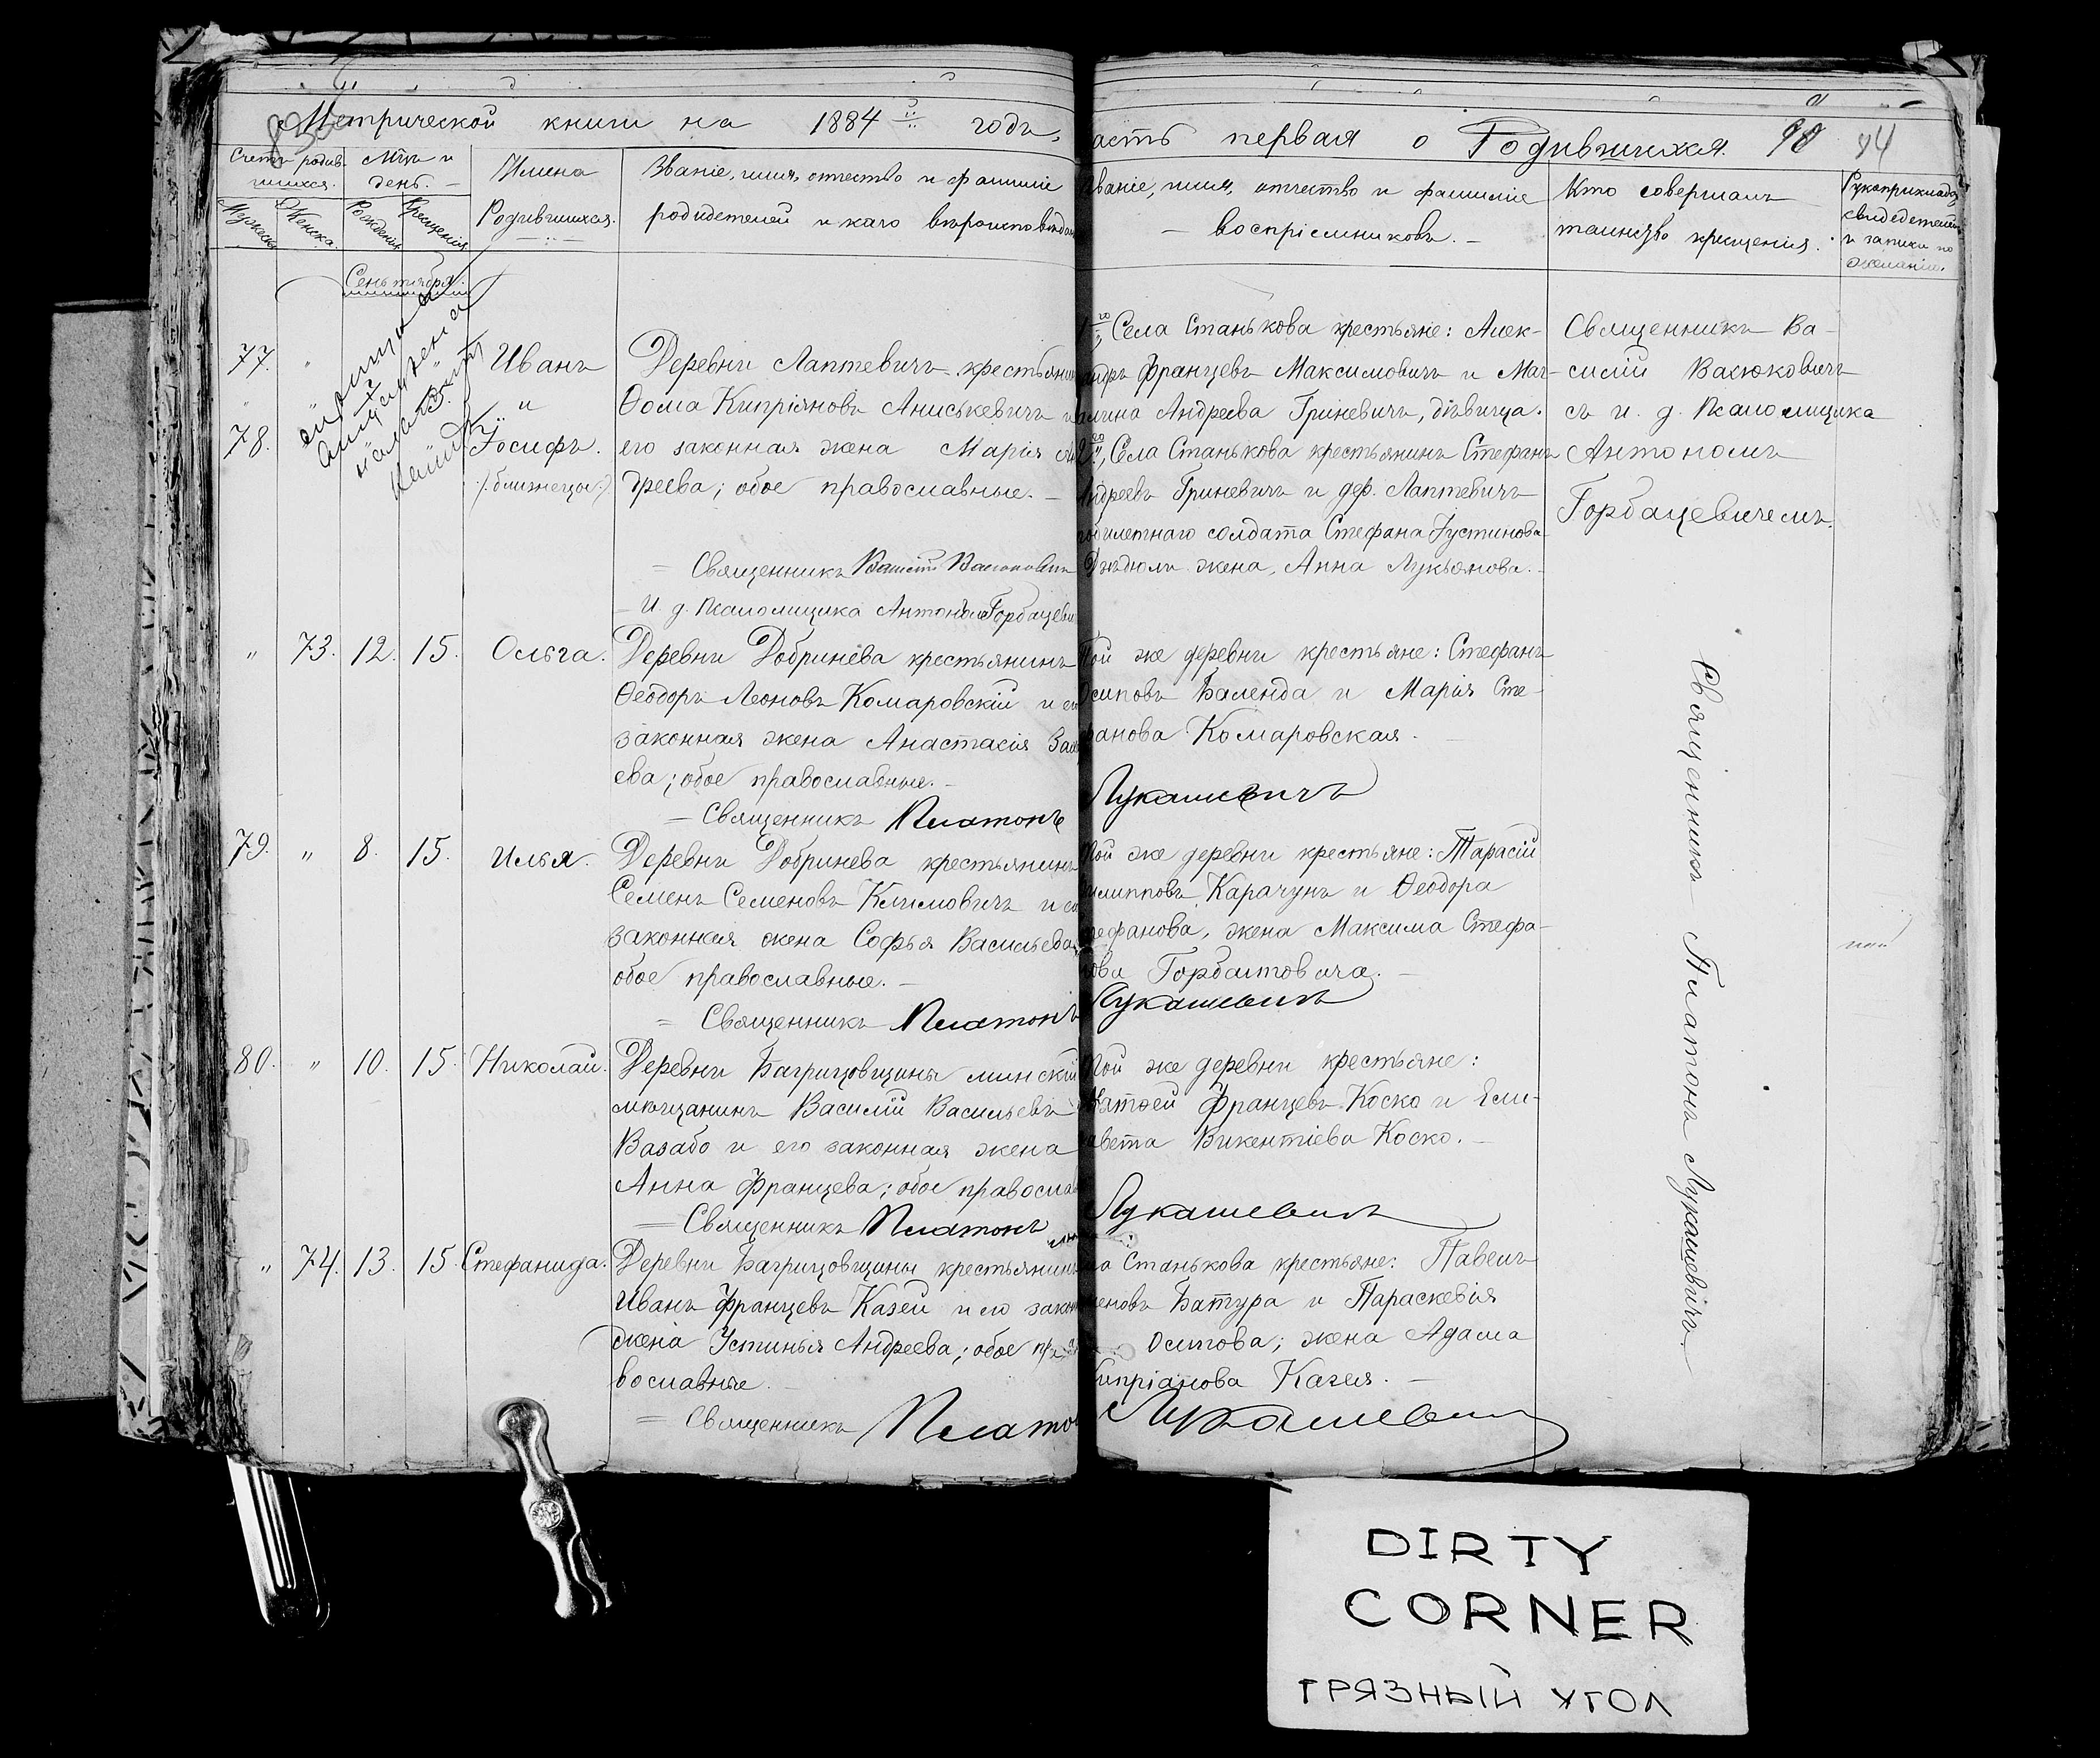 Метрической книги на 1884 годъ,
Счетъ родив-
шихся.
Мужеска
Женска.
Мѣц. и
день.
Рожденія
Крещенія
Имена
Родившихся.
Званіе, имя, отчество и фамиліе
родителей и каго
Сентября.
77.
78.
Иванъ
и
Іосифъ.
(близнецы)
Деревни Лаптевичъ крестьянинъ
Ѳома Кипріяновъ Аниськевичъ и
его законная жена Марія Ан
дреева; обое православные. —
Священникъ Василій Васюковичъ
И. д. Псаломщика Антонъ Горбацеви
" 73. 12. 15. Ольга.
Деревни Добринёва крестьянинъ
Ѳеодоръ Леоновъ Комаровскій и его
законная жена Анастасія
ева; обое православные. —
— Священникъ Платонъ
79. " 8. 15. Илья.
Деревни Добринева крестьянинъ
Семенъ Семеновъ Климовичъ и его
законная жена Софья Васильева,
обое православные. —
= Священникъ Платонъ
80. " 10. 15. Николай.
Деревни Багрицовщины минскій
мѣщанинъ Василій Васильевъ
Вазабо и его законная жена
Анна Францева; обое правосла
= Священникъ Платонъ
" 74. 13. 15. Стефанида.
Деревни Багрицовщины крестьянинъ
Иванъ Францевъ Казей и его закон
жена Устинья Андреева; обое пра
вославные. —
= Священникъ Плато
асть первая о Родившихся. 90 94
званіе, имя, отчество и фамиліе
— воспріемниковъ. —
Кто совершалъ
таинство крещенія.
Рукоприклад.
свидетелей
и записи по
желанію.
1го, Села Станькова крестьяне: Алек-
андръ Францевъ Максимовичъ и Маг-
алина Андреева Гриневичъ, дѣвица.
2го, Села Станькова крестьянинъ Стефанъ
Андреевъ Гриневичъ и дер. Лаптевичъ
билетнаго солдата Стефана Іустинова
жена, Анна Лукьянова. —
Священникъ Ва-
силій Васюковичъ
съ и. д. Псаломщика
Антономъ
Горбацевичемъ.
Той же деревни крестьяне: Стефанъ
Осиповъ Баленда и Марія Сте-
фанова Комаровская. —
Лукашевичъ
Той же деревни крестьяне: Тарасій
илипповъ Карачунъ и Ѳеодора
тефанова, жена Максима Стефа-
нова Горбатовича. —
Лукашевичъ
Той же деревни крестьяне:
Матѳей Францевъ Коско и Ели-
завета Викентіева Коско. —
Лукашевичъ
ла Станькова крестьяне: Павелъ
меновъ Батура и Параскевія
Осипова; жена Адама
Кипріанова Казея. —
Лукашевичъ
Священникъ Платонъ Лукашевичъ.
DIRTY
CORNER
ГРЯЗНЫЙ УГОЛ